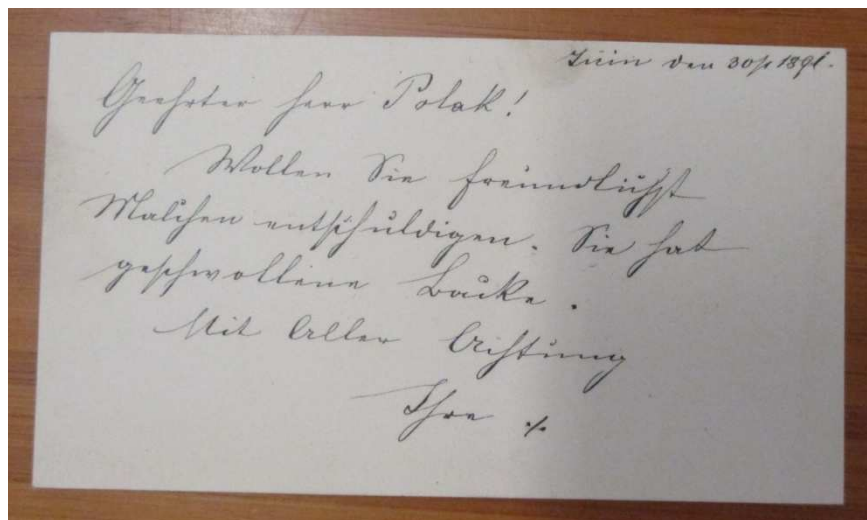 Jičin den 30/1 1891.
Geehrter Herr Polak!
Wollen Sie freundlichst
Malchen entschuldigen. Sie hat
geschwollene Backe.
Mit Aller Achtung
Ihre ./.